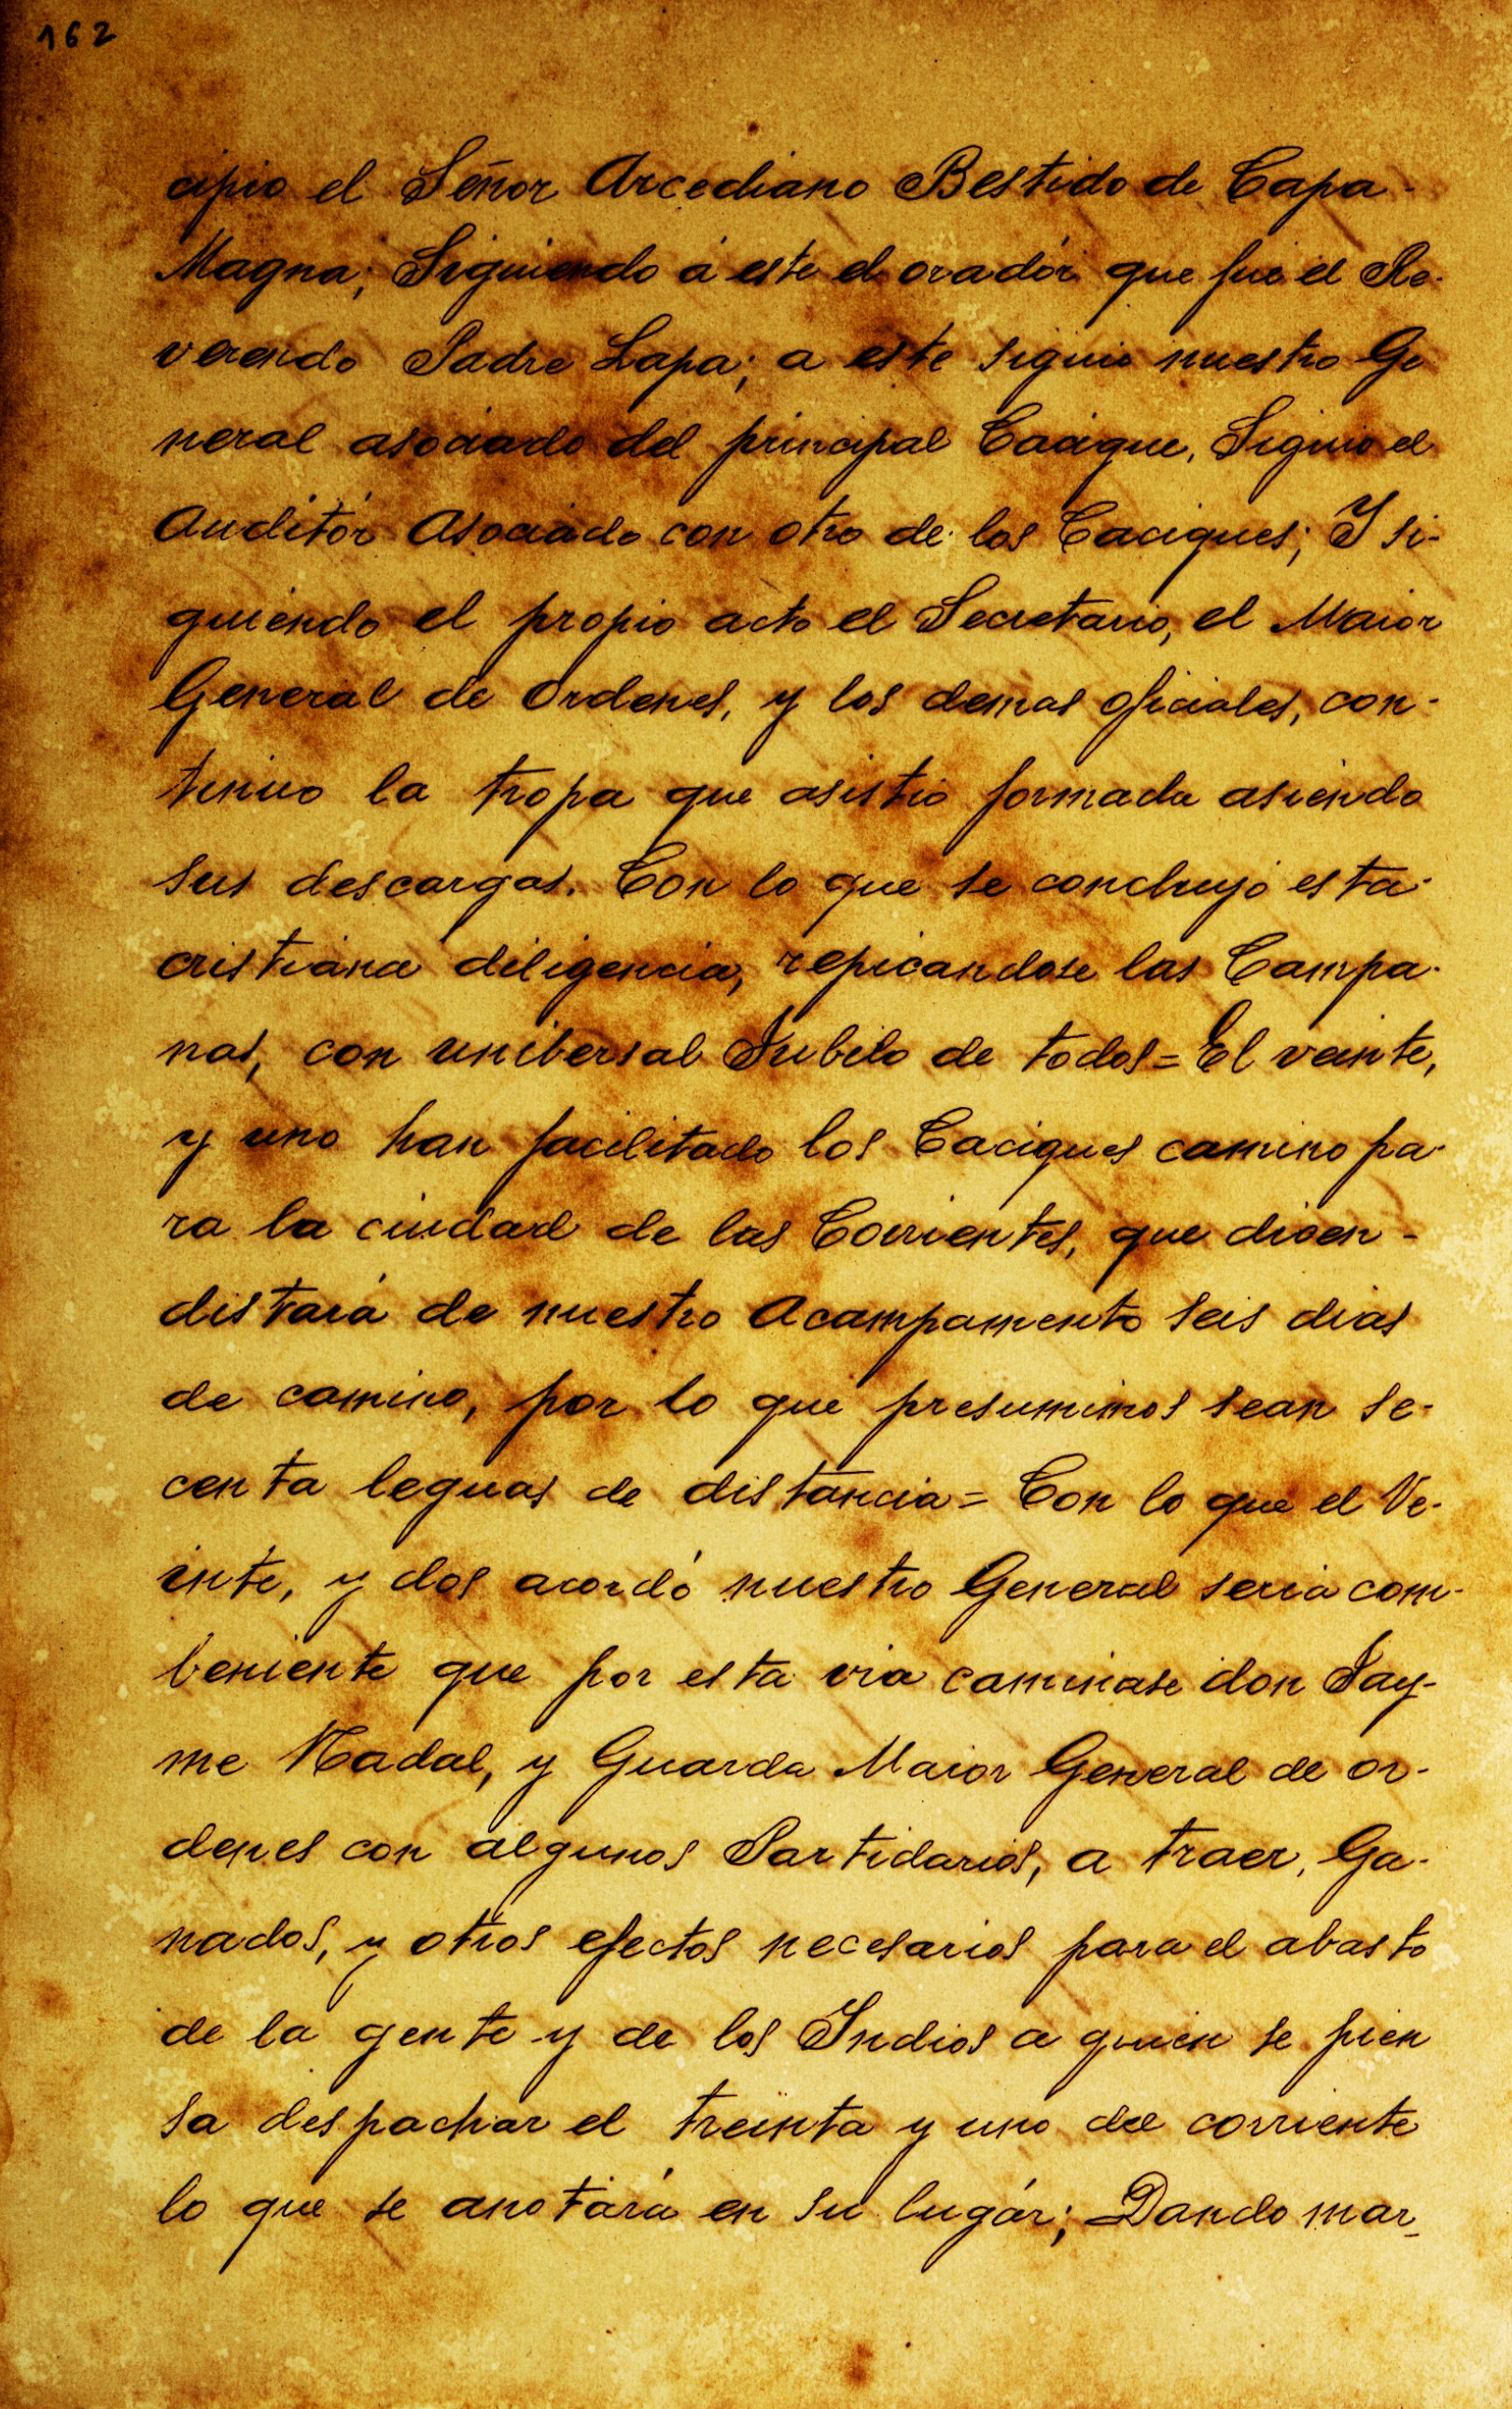 162
cipio el Señor Arcediano Bestido de Capa-
Magna; Siguiendo á este el oradór que fue el Re-
verendo Padre Lapa; a este siguio nuestro Ge
neral asociado del principal Cacique, Siguio el
Auditór Asociado con otro de los Caciques; I si-
guiendo el propio acto el Secretario, el Maior
General de Ordenes, y los demas oficiales, con-
tinuo la tropa que asistio formada asiendo
sus descargas. Con lo que se conclujo esta
cristiana diligencia, repicandose las Campa-
nas, con unibersal Jubilo de todos = El veinte,
y uno han facilitado los Caciques camino pa-
ra la ciudad de las Corrientes, que dicen-
distará de nuestro Acampamento seis dias
de camino, por lo que presumimos sean se-
centa leguas de distancia = Con lo que el Ve-
inte, y dos acordó nuestro General seria com-
beniente que por esta via caminase don Jay-
me Nadal, y Guarda Maior General de or-
denes con algunos Partidarios, a traer, Ga-
nados, y otros efectos necesarios para el abasto
de la gente y de los Indios a quien se pien
sa despachar el treinta y uno del corriente
lo que se anotará en su lugár; Dando mar-